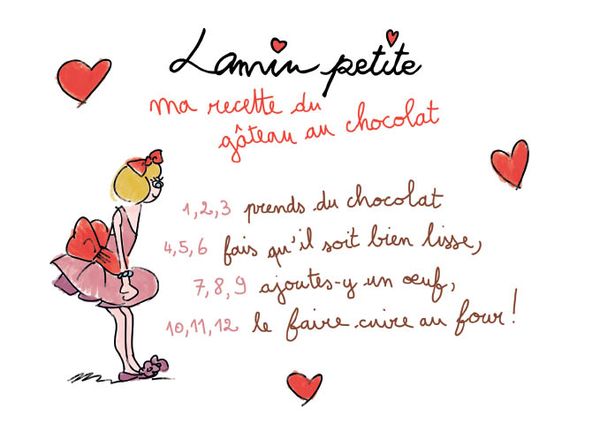 Lamin petite
ma recette du
gâteau au chocolat
1,2,3 prends du chocolat
4,5,6 fais qu'il soit bien lisse,
7,8,9 ajoutes-y un œuf,
10,11,12 le faire cuire au four !